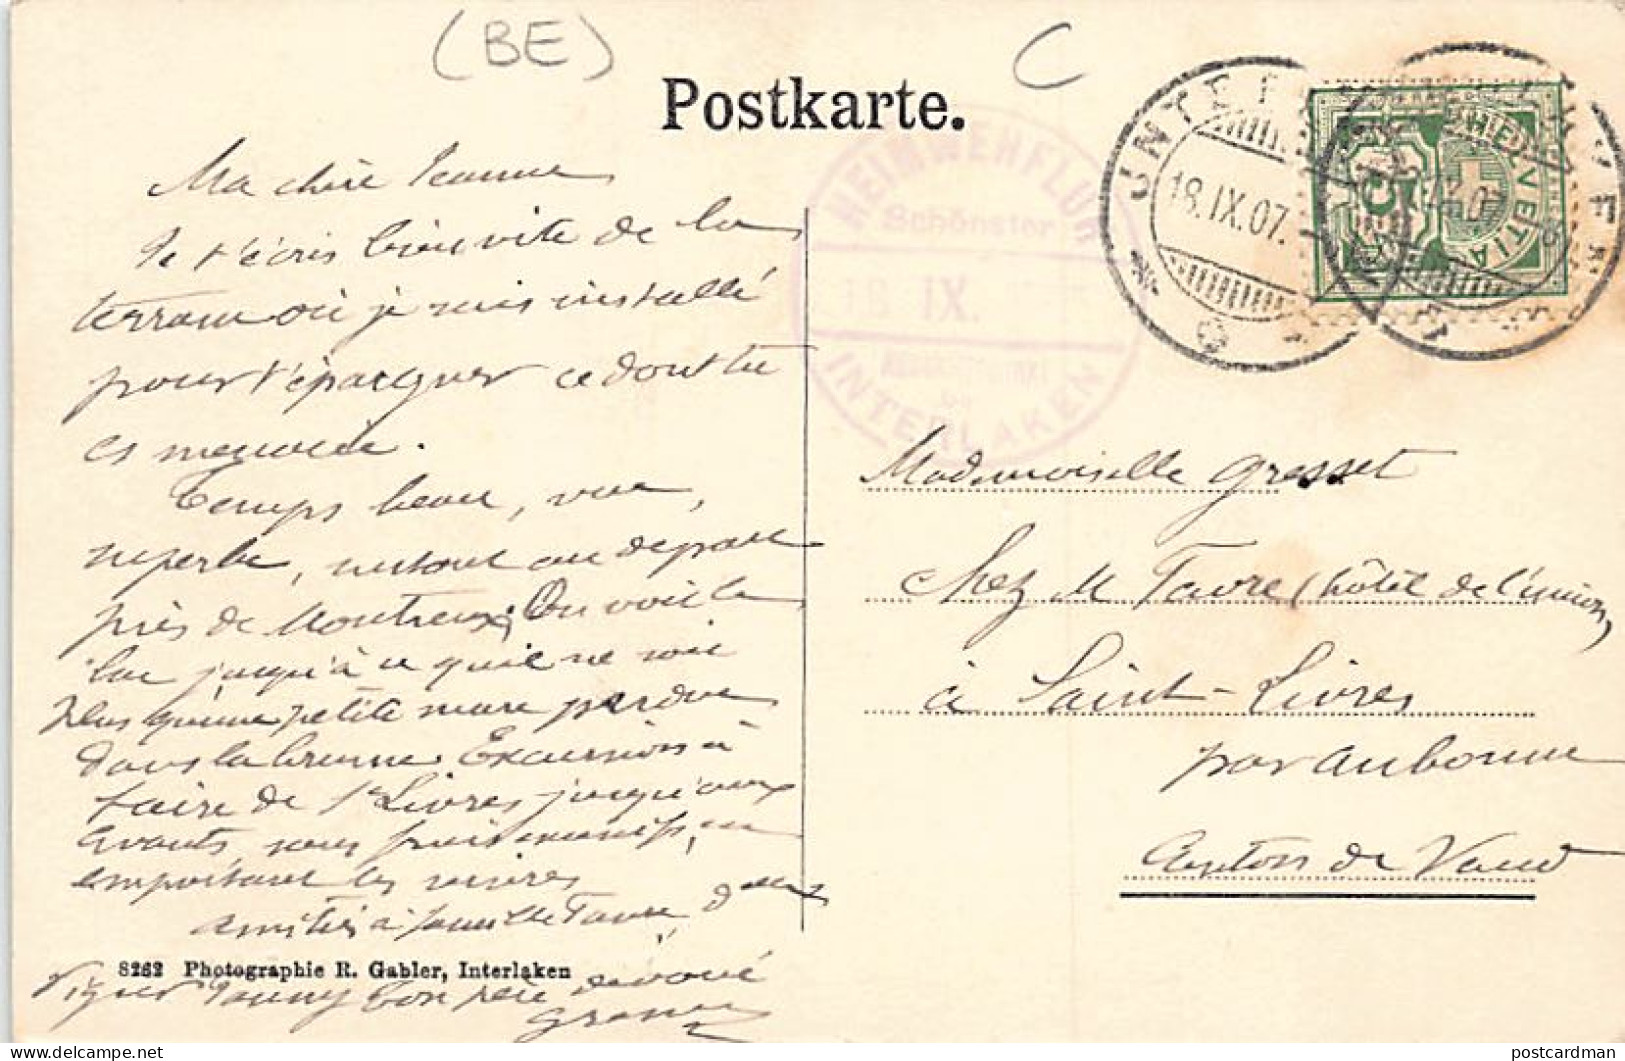 (BE)
C
Postkarte.
UNTERSEEN
18.IX.07.
HELVETIA
5
HEIMWEHFLUH
Schönster
18 IX.
INTERLAKEN
Ma chère Jeanne
Je t'écris bien vite de la
terrasse où je suis installé
pour t'épargner ce dont tu
es menacée.
Temps beau, vue,
superbe, surtout au départ
près de Montreux; On voit le
lac jusqu'à ce qu'il ne soit
plus qu'une petite mare perdue
dans la brume Excursion à
faire de St Livres jusqu'aux
Avants
emportant les vivres
Amitiés à famille Favre,
8262 Photographie R. Gabler, Interlaken
Fanny bon père dévoué
Mademoiselle Grosset
Chez M Favre (hôtel de l'union)
à Saint-Livres
par Aubonne
Canton de Vaud
postcardman